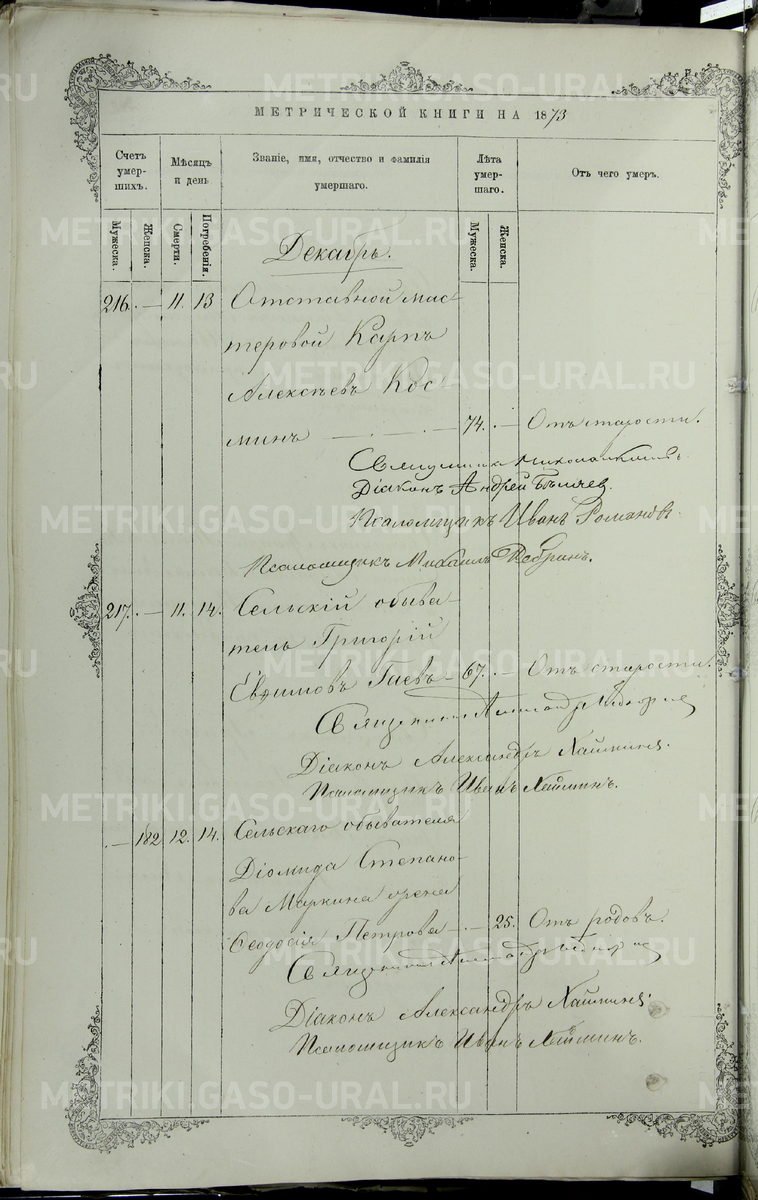 МЕТРИЧЕСКОЙ КНИГИ НА 1873
Счетъ умер-шихъ.
Мѣсяцъ и день
Званіе, имя, отчество и фамилія умершаго.
Лѣта умер-шаго.
Отъ чего умеръ.
Мужеска.
Женска.
Смерти.
Погребенія.
Мужеска.
Женска.
Декабрь.
216. — 11. 13 Отставной мас-
теровой Карпъ
Алексѣевъ Кос-
минъ — 74. — Отъ старости.
Священникъ
Діаконъ Андрей Бѣляев.
Псаломщикъ Иванъ Романовъ.
Псаломщикъ Михаилъ
217. — 11. 14. Сельскій обыва-
тель Григорій
Евѳимовъ Гаевъ — 67. — Отъ старости.
Священникъ
Діаконъ Александръ
Псаломщикъ Иванъ
— 182 12. 14. Сельскаго обывателя
Діомида Степано-
ва Маркина жена
Ѳеодосія Петрова — 25. Отъ родовъ.
Священникъ
Діаконъ Александръ
Псаломщикъ Иванъ
METRIKI.GASO-URAL.RU